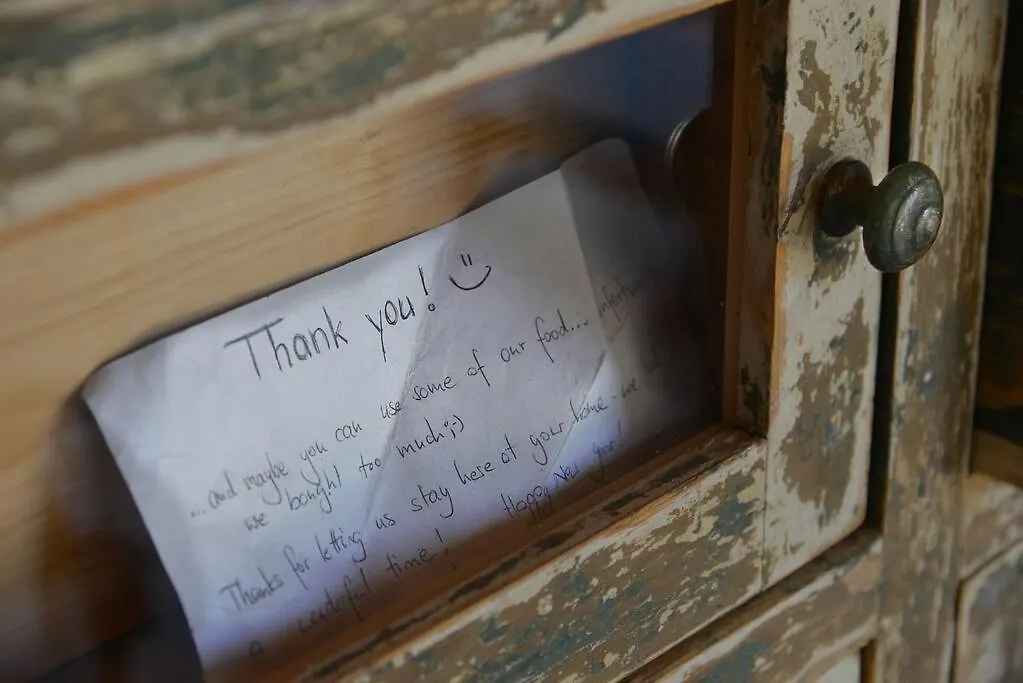 Thank you!
...and maybe you can use some of our food...
we bought too much ;-)
Thanks for letting us stay here at your home - we
a wonderful time! Happy New Year!